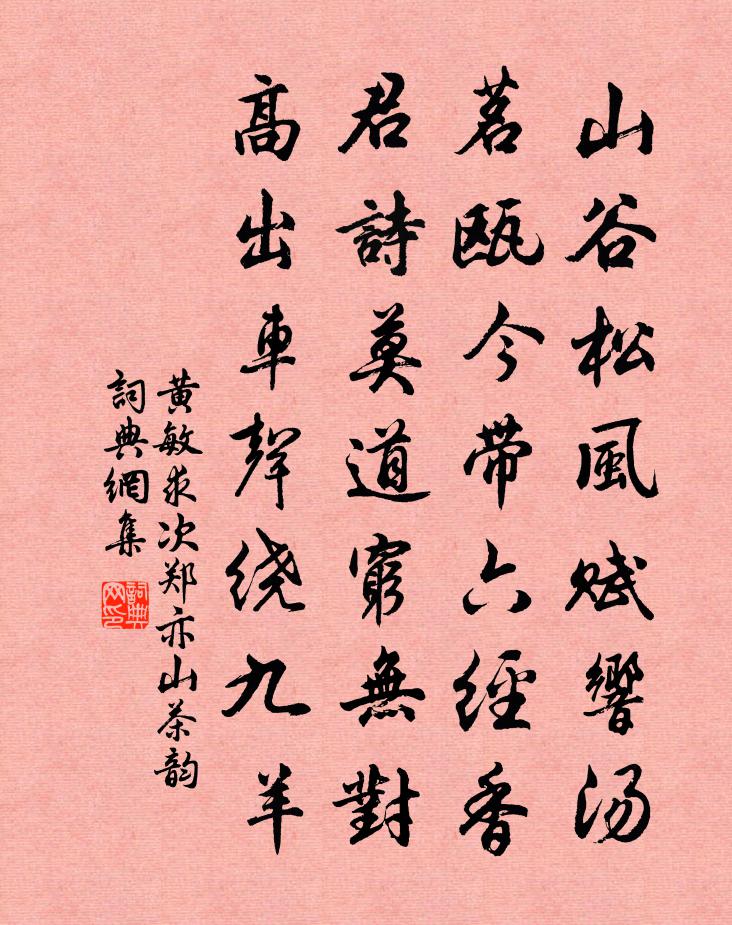 山谷松風赋響汤
茗瓯今带六經香
君詩莫道窮無對
高出車聲绕九羊
黄敏求次郑亦山茶韵
詞典網集
詞典
网印